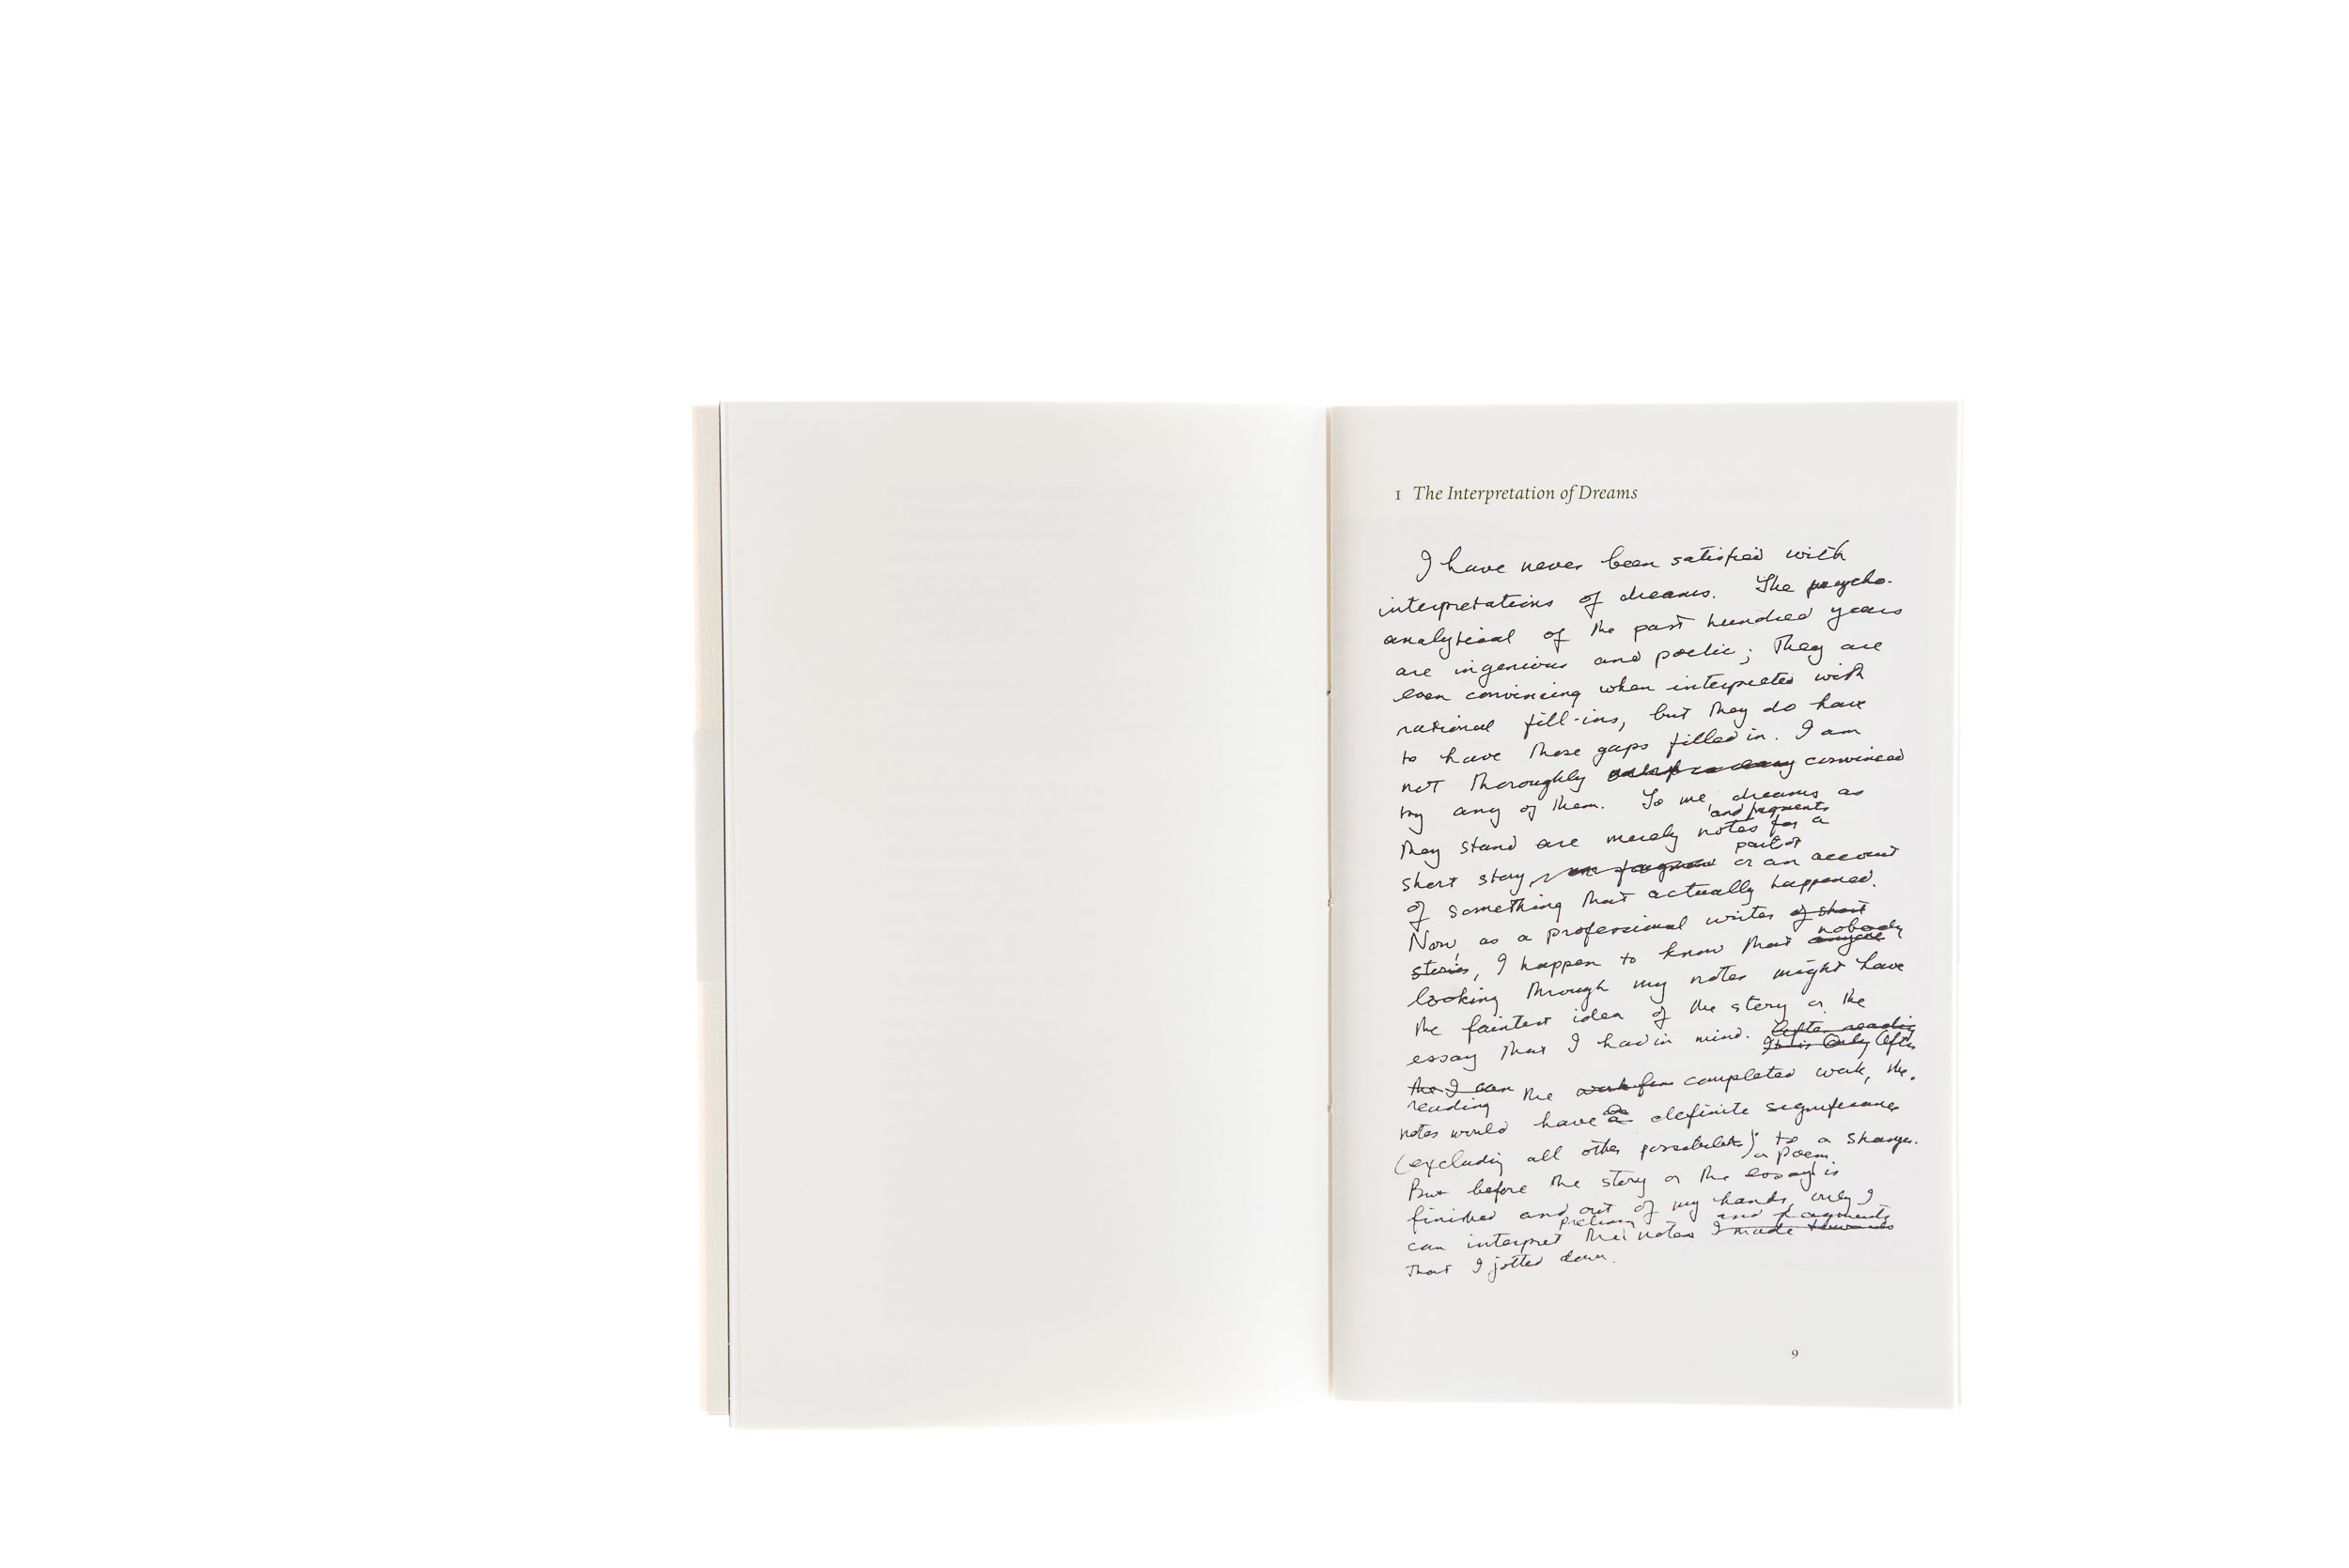 1 The Interpretation of Dreams
I have never been satisfied with
interpretations of dreams. The psycho-
analytical of the past hundred years
are ingenious and poetic; they are
even convincing when interpreted with
rational fill-ins, but they do have
to have those gaps filled in. I am
not thoroughly convinced
by any of them. To me, dreams as
and fragments
they stand are merely notes for a
part of
short story, or an account
of something that actually happened.
Now, as a professional writer of short
nobody
stories, I happen to know that anyone
looking through my notes might have
the faintest idea of the story or the
essay that I had in mind. After reading
It is Only After
the I can the completed work, the
reading
notes would have a definite significance
(excluding all other possibilities) to a stranger.
or poem
But before the story or the essay is
finished and out of my hands, only I
and fragments
can interpret the notes I made towards
that I jotted down.
9